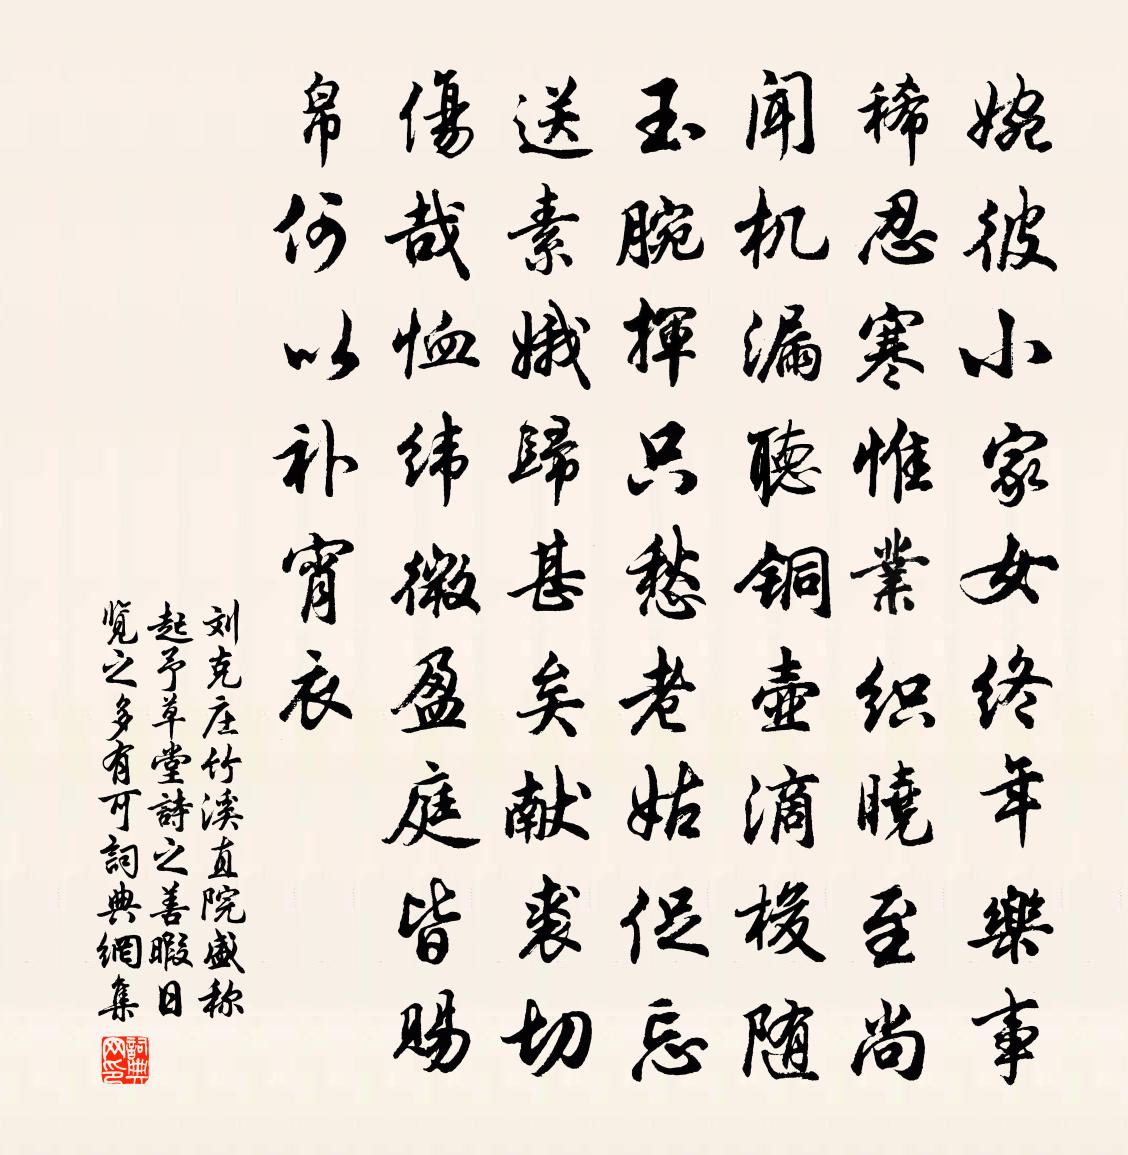 婉彼小家女终年樂事
稀忍寒惟業织曉至尚
闻机漏聽铜壺滴梭随
玉腕揮只愁老姑促忘
送素娥歸甚矣献裘切
傷哉恤纬微盈庭皆賜
帛何以补宵衣
刘克庄竹溪直院盛称
起予草堂詩之善暇日
览之多有可詞典網集